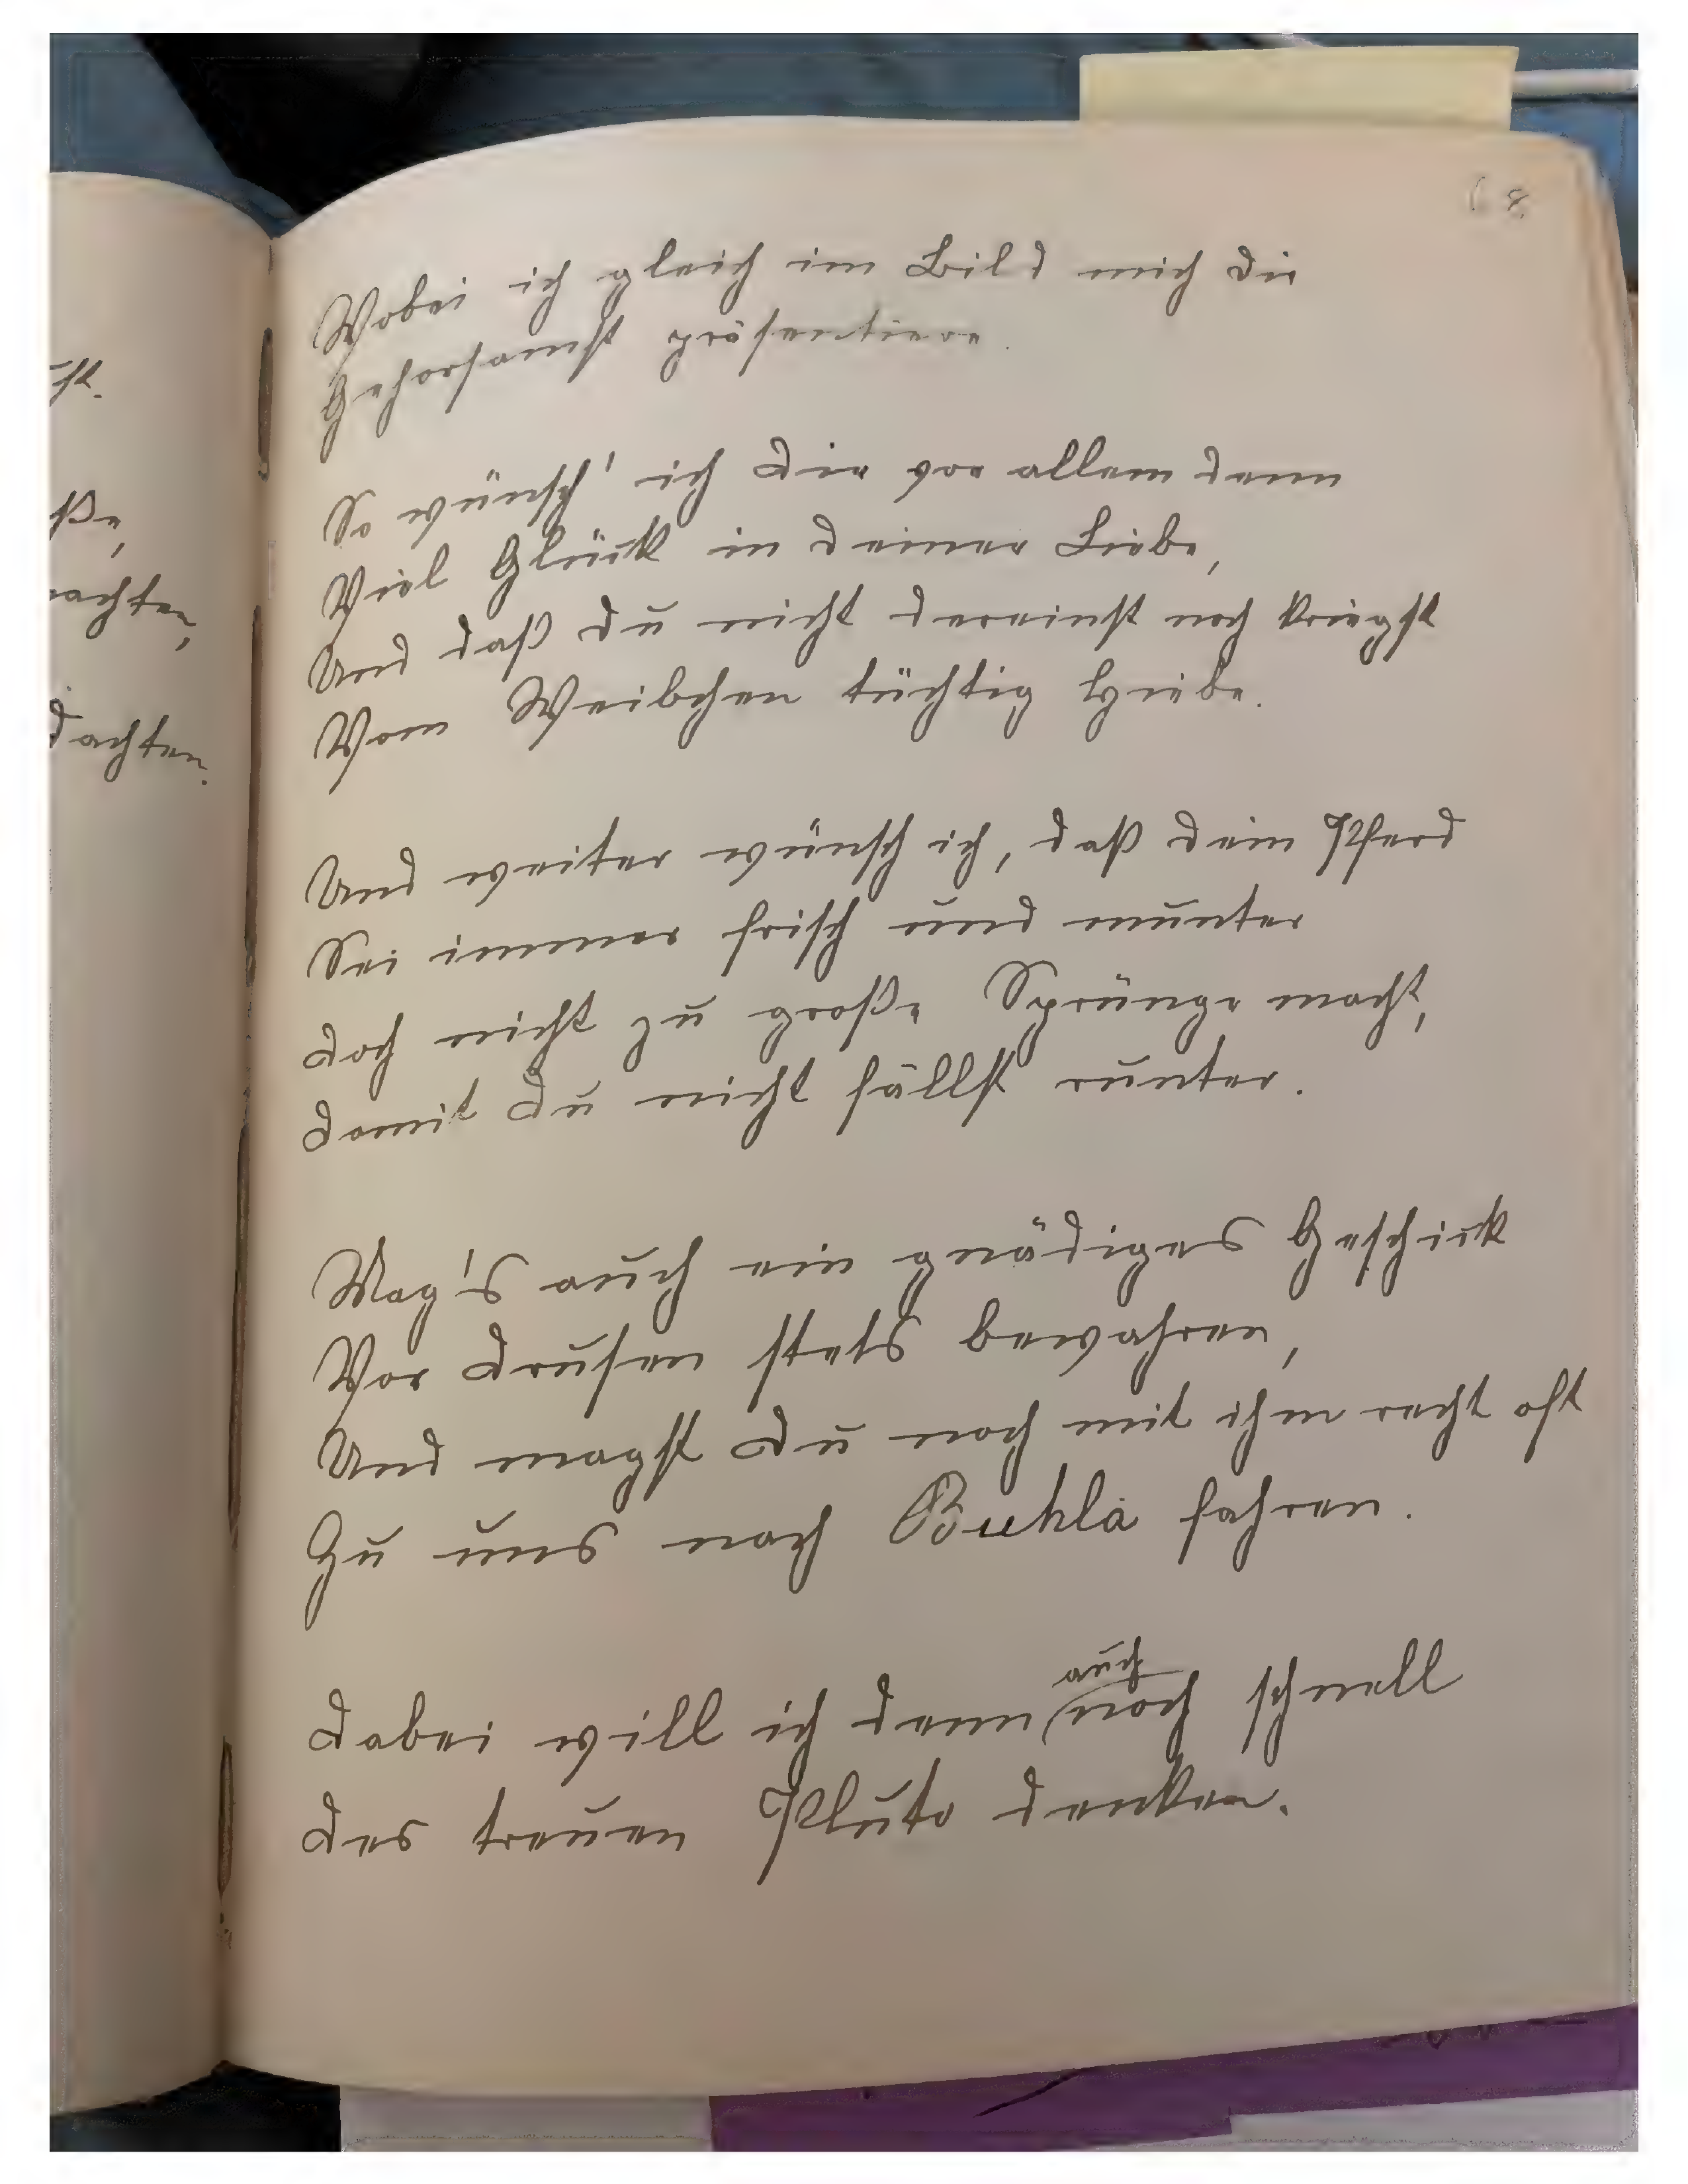 68
Wobei ich gleich im Bild mich dir
Gehorsamst präsentiere.
So wünsch' ich Dir vor allem denn
Viel Glück in deiner Liebe,
Und daß du nicht dereinst noch kriegst
Vom Weibchen tüchtig Hiebe.
Und weiter wünsch ich, daß dein Pferd
Sei immer frisch und munter
Doch nicht zu große Sprünge macht,
Damit Du nicht fällst runter.
Mag's auch ein gnädiges Geschick
Vor Drusen stets bewahren,
Und magst Du noch mit ihm recht oft
Zu uns nach Buhla fahren.
Dabei will ich denn auch noch schnell
Des treuen Pluto denken.
ße,
achten,
dachten.